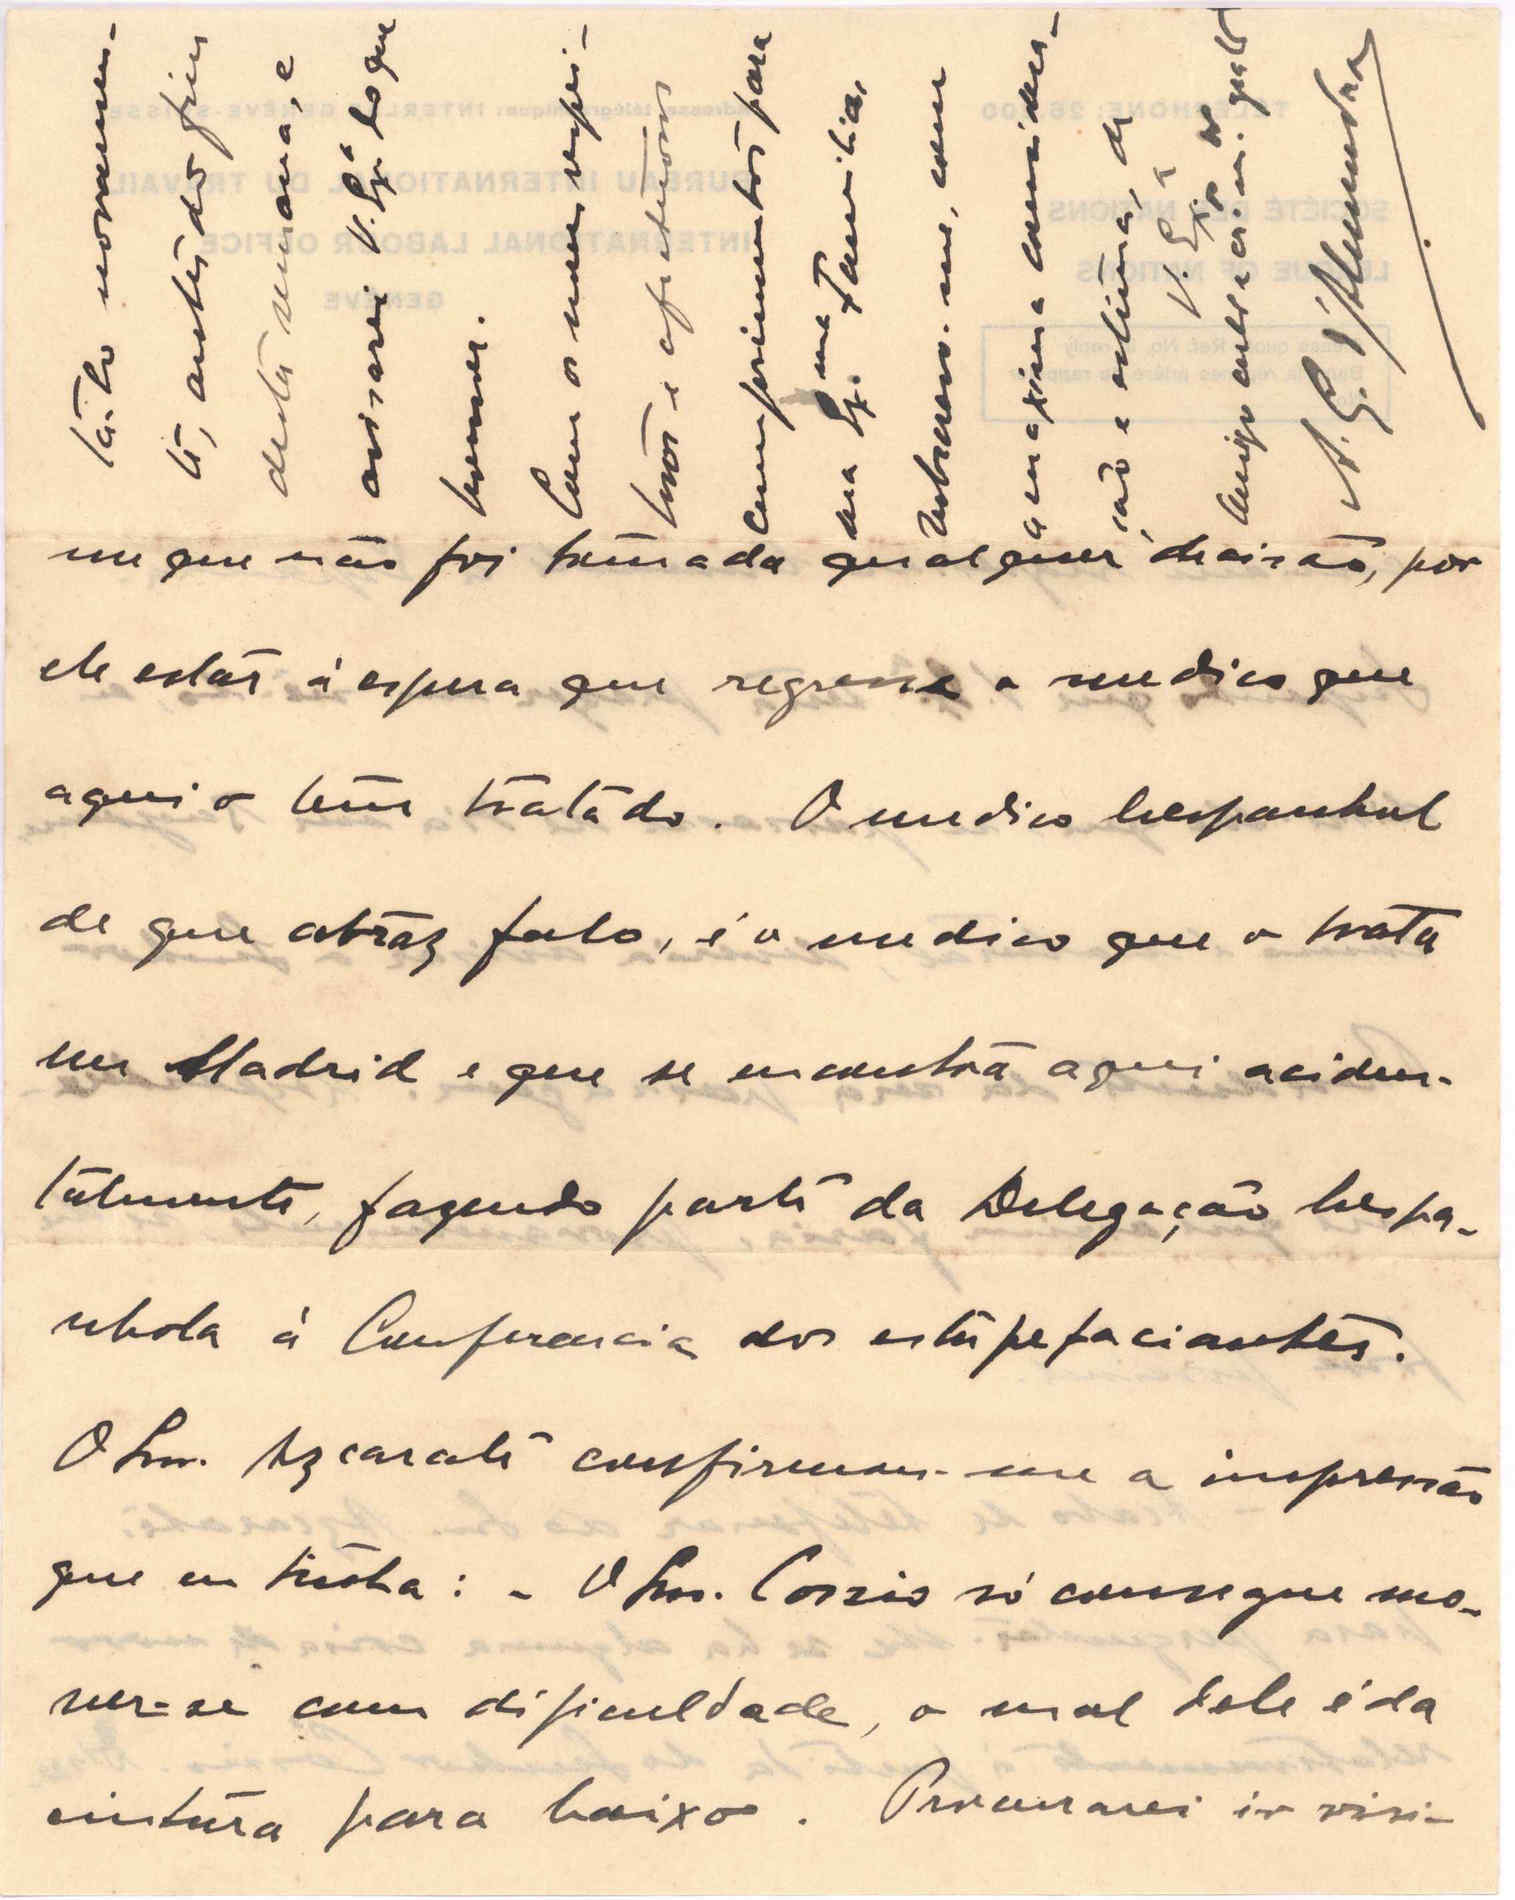 me que não foi tomada qualquer decisão, por
ele estar á espera que regresse o medico que
aqui o tem tratado. O medico hespanhol
de que atraz falo, é o medico que o trata
em Madrid e que se encontra aqui aciden-
talmente, fazendo parte da Delegação hespa-
nhola á Conferencia dos estupefaciantes.
O Snr. Azcarate confirmou-me a impressão
que eu tinha: - O Snr. Cossio só consegue mo-
ver-se com dificuldade, o mal dele é da
cintura para baixo. Procurarei ir visi-
ta-lo novamen-
te, antes do fim
desta semana, e
avisarei V. Exª do que
houver.
Com os meus respei-
tosos e afectuosos
cumprimentos para
sua Exma Familia,
subscrevo-me, com
a maxima considera-
ção e estima, de
V. Exª
Amigo
A. C. d'
TÉLÉPHONE: 26
Adresse télégraphique: INTERL GENÈVE-SUISSE
BUREAU INTERNATIONAL DU TRAVAIL
INTERNATIONAL LABOUR OFFICE
GENÈVE
SOCIÉTÉ DES NATIONS
LEAGUE OF NATIONS